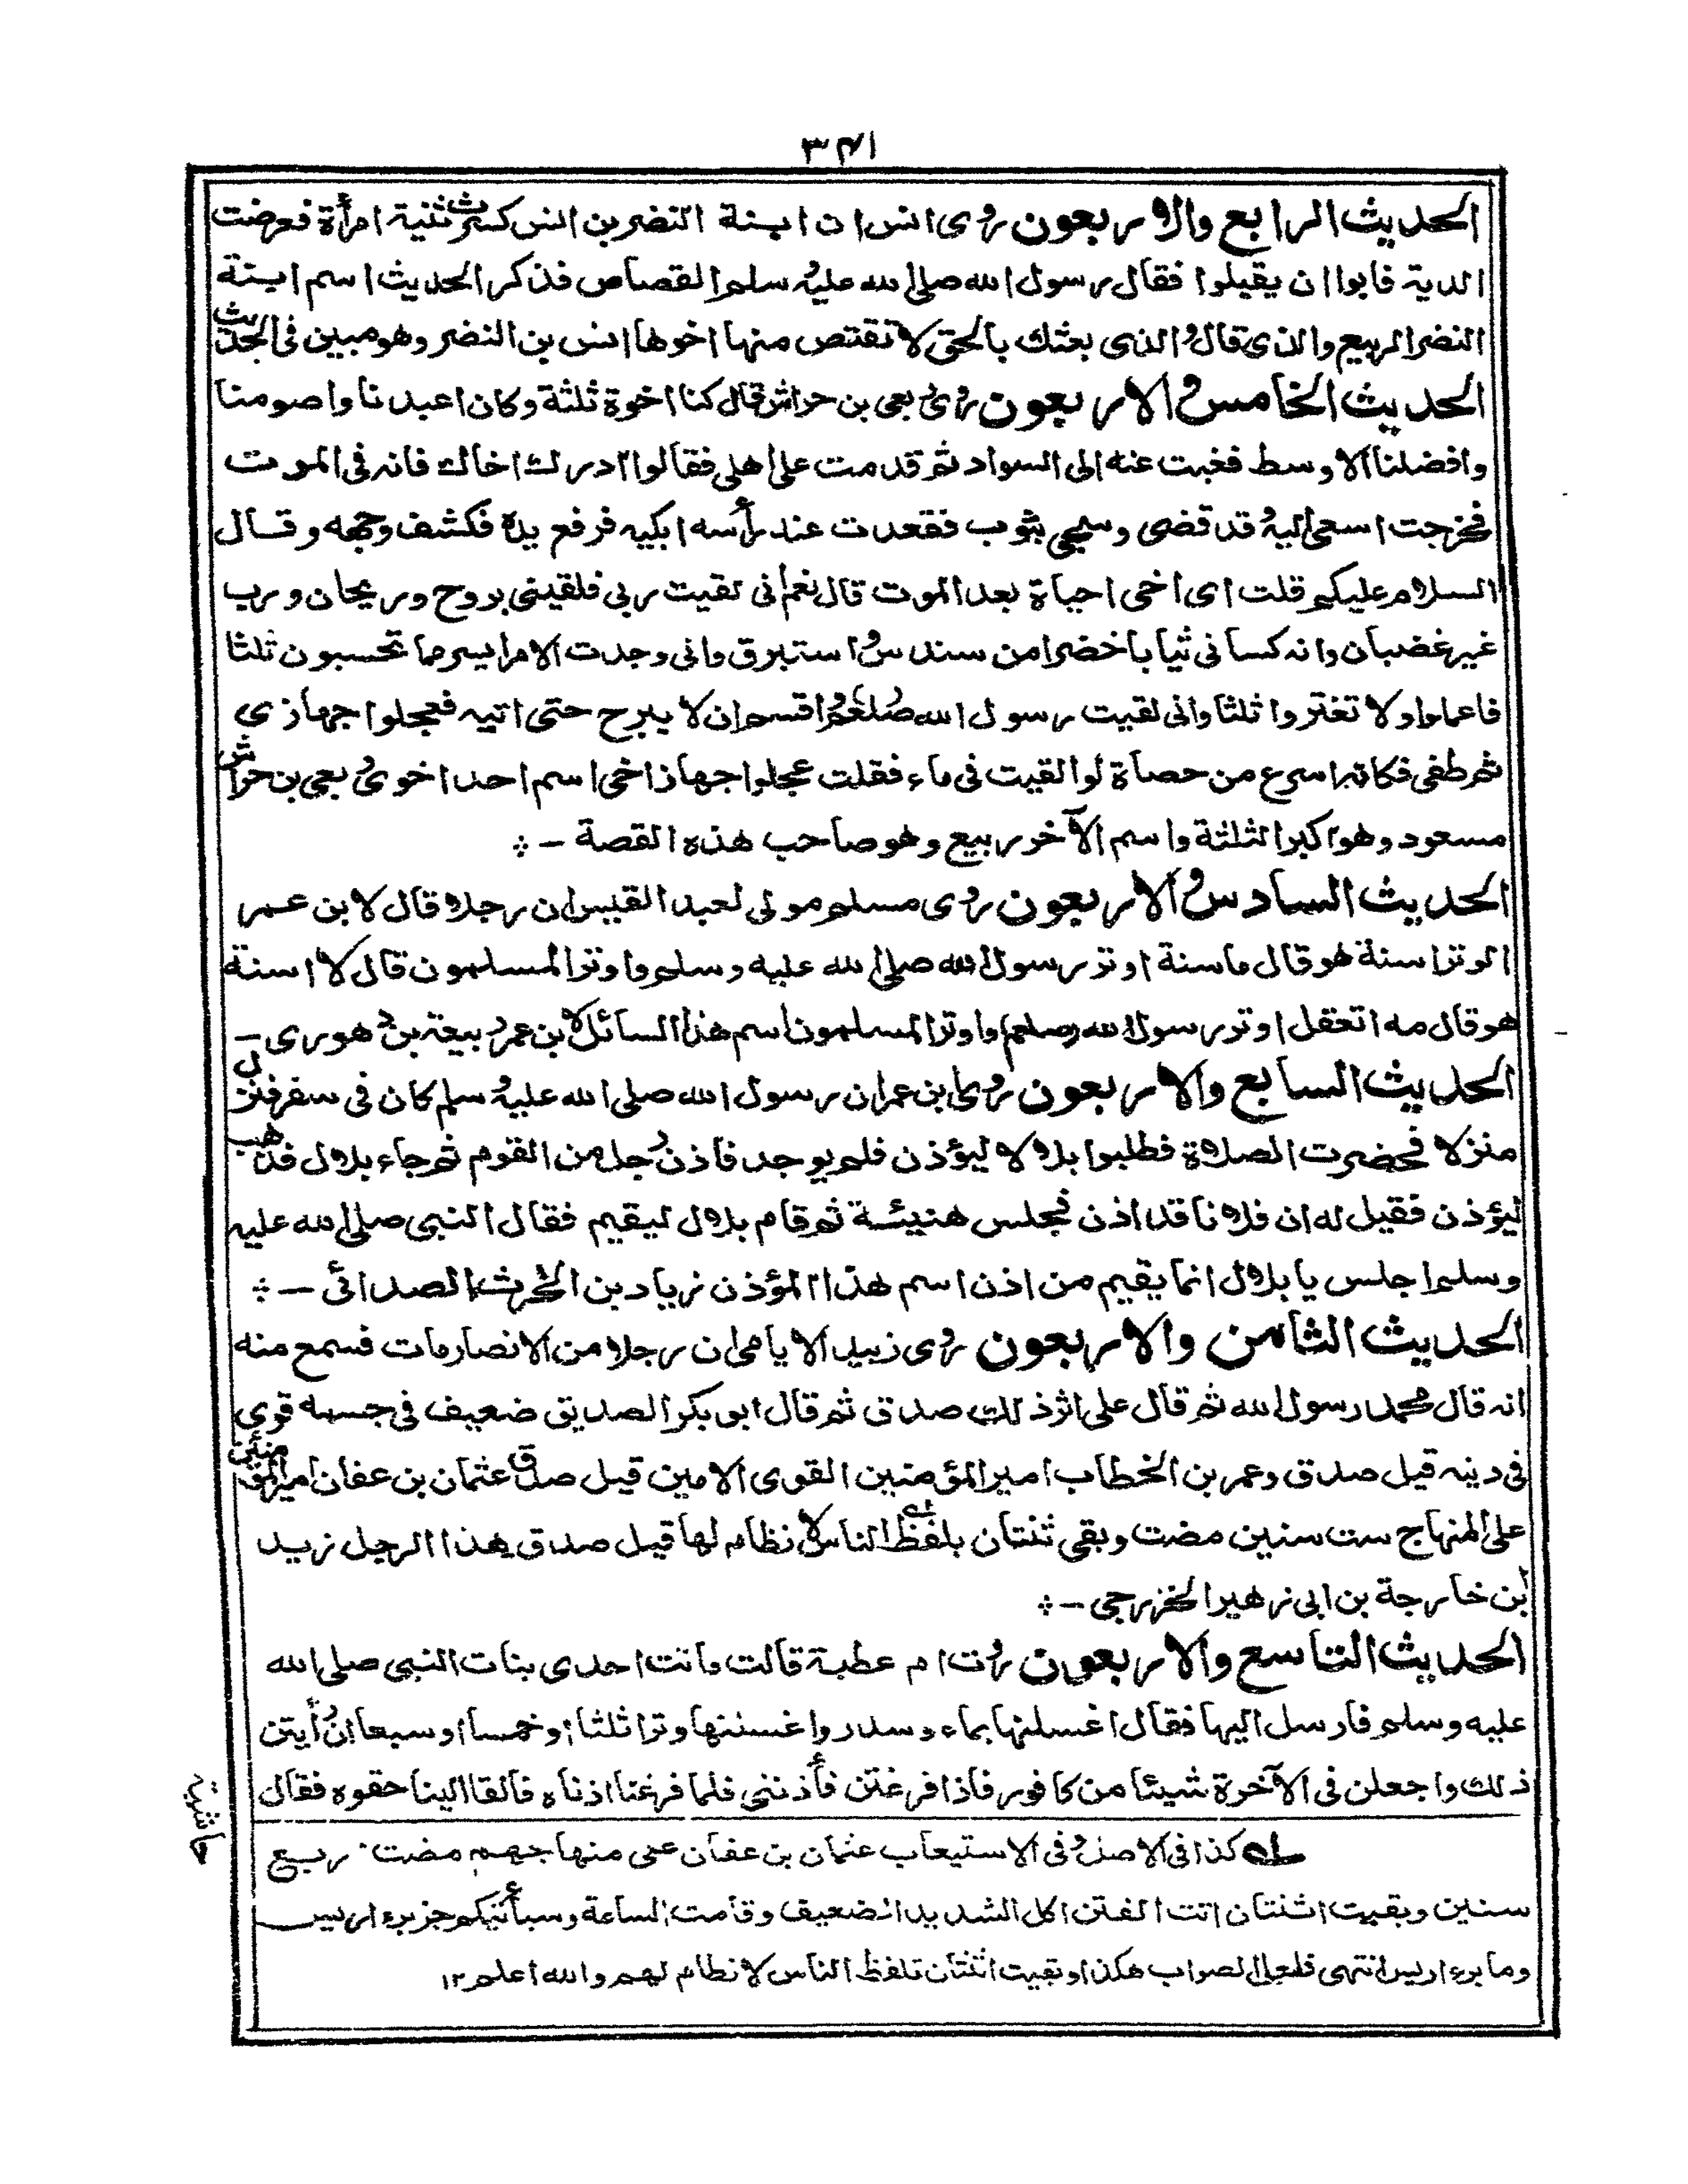 ٣٤١
الحديث الرابع والاربعون روى انس ان ابنة النضر بن انس كسرت ثنية امرأة فعرضت
الدية فابوا ان يقبلوا فقال رسول الله صلى الله عليه وسلم القصاص فذكر الحديث اسم ابنة
النضر الربيع والذى قال والذى بعثك بالحق لا تقتص منها اخوها انس بن النضر وهو مبين فى الحديث
الحديث الخامس والاربعون روى ربعى بن حراش قال كنا اخوة ثلثة وكان اعبدنا واصومنا
وافضلنا الاوسط فغبت عنه الى السواد ثم قدمت على اهلى فقالوا ادرك اخاك فانه فى الموت
فخرجت اسعى اليه وقد قضى وسجى بثوب فقعدت عند رأسه ابكيه فرفع يده فكشف وجهه وقال
السلام عليكم قلت اى اخى احياة بعد الموت قال نعم انى لقيت ربى فلقينى بروح وريحان ورب
غير غضبان وانه كسانى ثيابا خضرا من سندس واستبرق وانى وجدت الامر ايسر مما تحسبون ثلثا
فاعملوا ولا تغتروا ثلثا وانى لقيت رسول الله صلعم واقسم ان لا يبرح حتى اتيه فعجلوا جهازى
ثم طفى فكانه اسرع من حصاة لو القيت فى ماء فقلت عجلوا جهاز اخى اسم احد اخوى ربعى بن حراش
مسعود وهو اكبر الثلثة واسم الآخر ربيع وهو صاحب هذه القصة ـ
الحديث السادس والاربعون روى مسلم مولى لعبد القيس ان رجلا قال لابن عمر
الوتر اسنة هو قال ما سنة اوتر رسول الله صلى الله عليه وسلم واوتر المسلمون قال لا اسنة
هو قال مه اتعقل اوتر رسول الله صلعم واوتر المسلمون اسم هذا السائل لابن عمر ربيعة بن هورى ـ
الحديث السابع والاربعون روى ابن عمر ان رسول الله صلى الله عليه وسلم كان فى سفر فنزل
منزلا فحضرت الصلاة فطلبوا بلالا ليؤذن فلم يوجد فاذن رجل من القوم ثم جاء بلال فذهب
ليؤذن فقيل له ان فلانا قد اذن فجلس هنيئة ثم قام بلال ليقيم فقال النبى صلى الله عليه
وسلم اجلس يا بلال انما يقيم من اذن اسم هذا المؤذن زياد بن الحرث الصدائى ـ
الحديث الثامن والاربعون روى زبيد الايامى ان رجلا من الانصار مات فسمع منه
انه قال محمد رسول الله ثم قال على اثر ذلك صدق ثم قال ابو بكر الصديق ضعيف فى جسمه قوى
فى دينه قيل صدق وعمر بن الخطاب امير المؤمنين القوى الامين قيل صدق عثمان بن عفان امير المؤمنين
على المنهاج ست سنين مضت وبقى ثنتان بلفظ الناس لا نظام لها قيل صدق هذا الرجل زيد
ابن خارجة بن ابى زهير الخزرجى ـ
الحديث التاسع والاربعون روت ام عطية قالت ماتت احدى بنات النبى صلى الله
عليه وسلم فارسل اليها فقال اغسلنها بماء وسدر واغسلنها وترا ثلثا او خمسا او سبعا ان رأيتن
ذلك واجعلن فى الآخرة شيئا من كافور فاذا فرغتن فأذننى فلما فرغنا اذناه فالقا الينا حقوه فقال
حاشية
له كذا فى الاصل وفى الاستيعاب عثمان بن عفان على منهاجهم مضت ربيع
سنين وبقيت اثنتان اتت الفتن اكل الشديد الضعيف وقامت الساعة وسيأتيكم خبر بير اريس
وما بير اريس انتهى فلعل الصواب هكذا وبقيت اثنتان تلفظ الناس لا نظام لهم والله اعلم ١٢